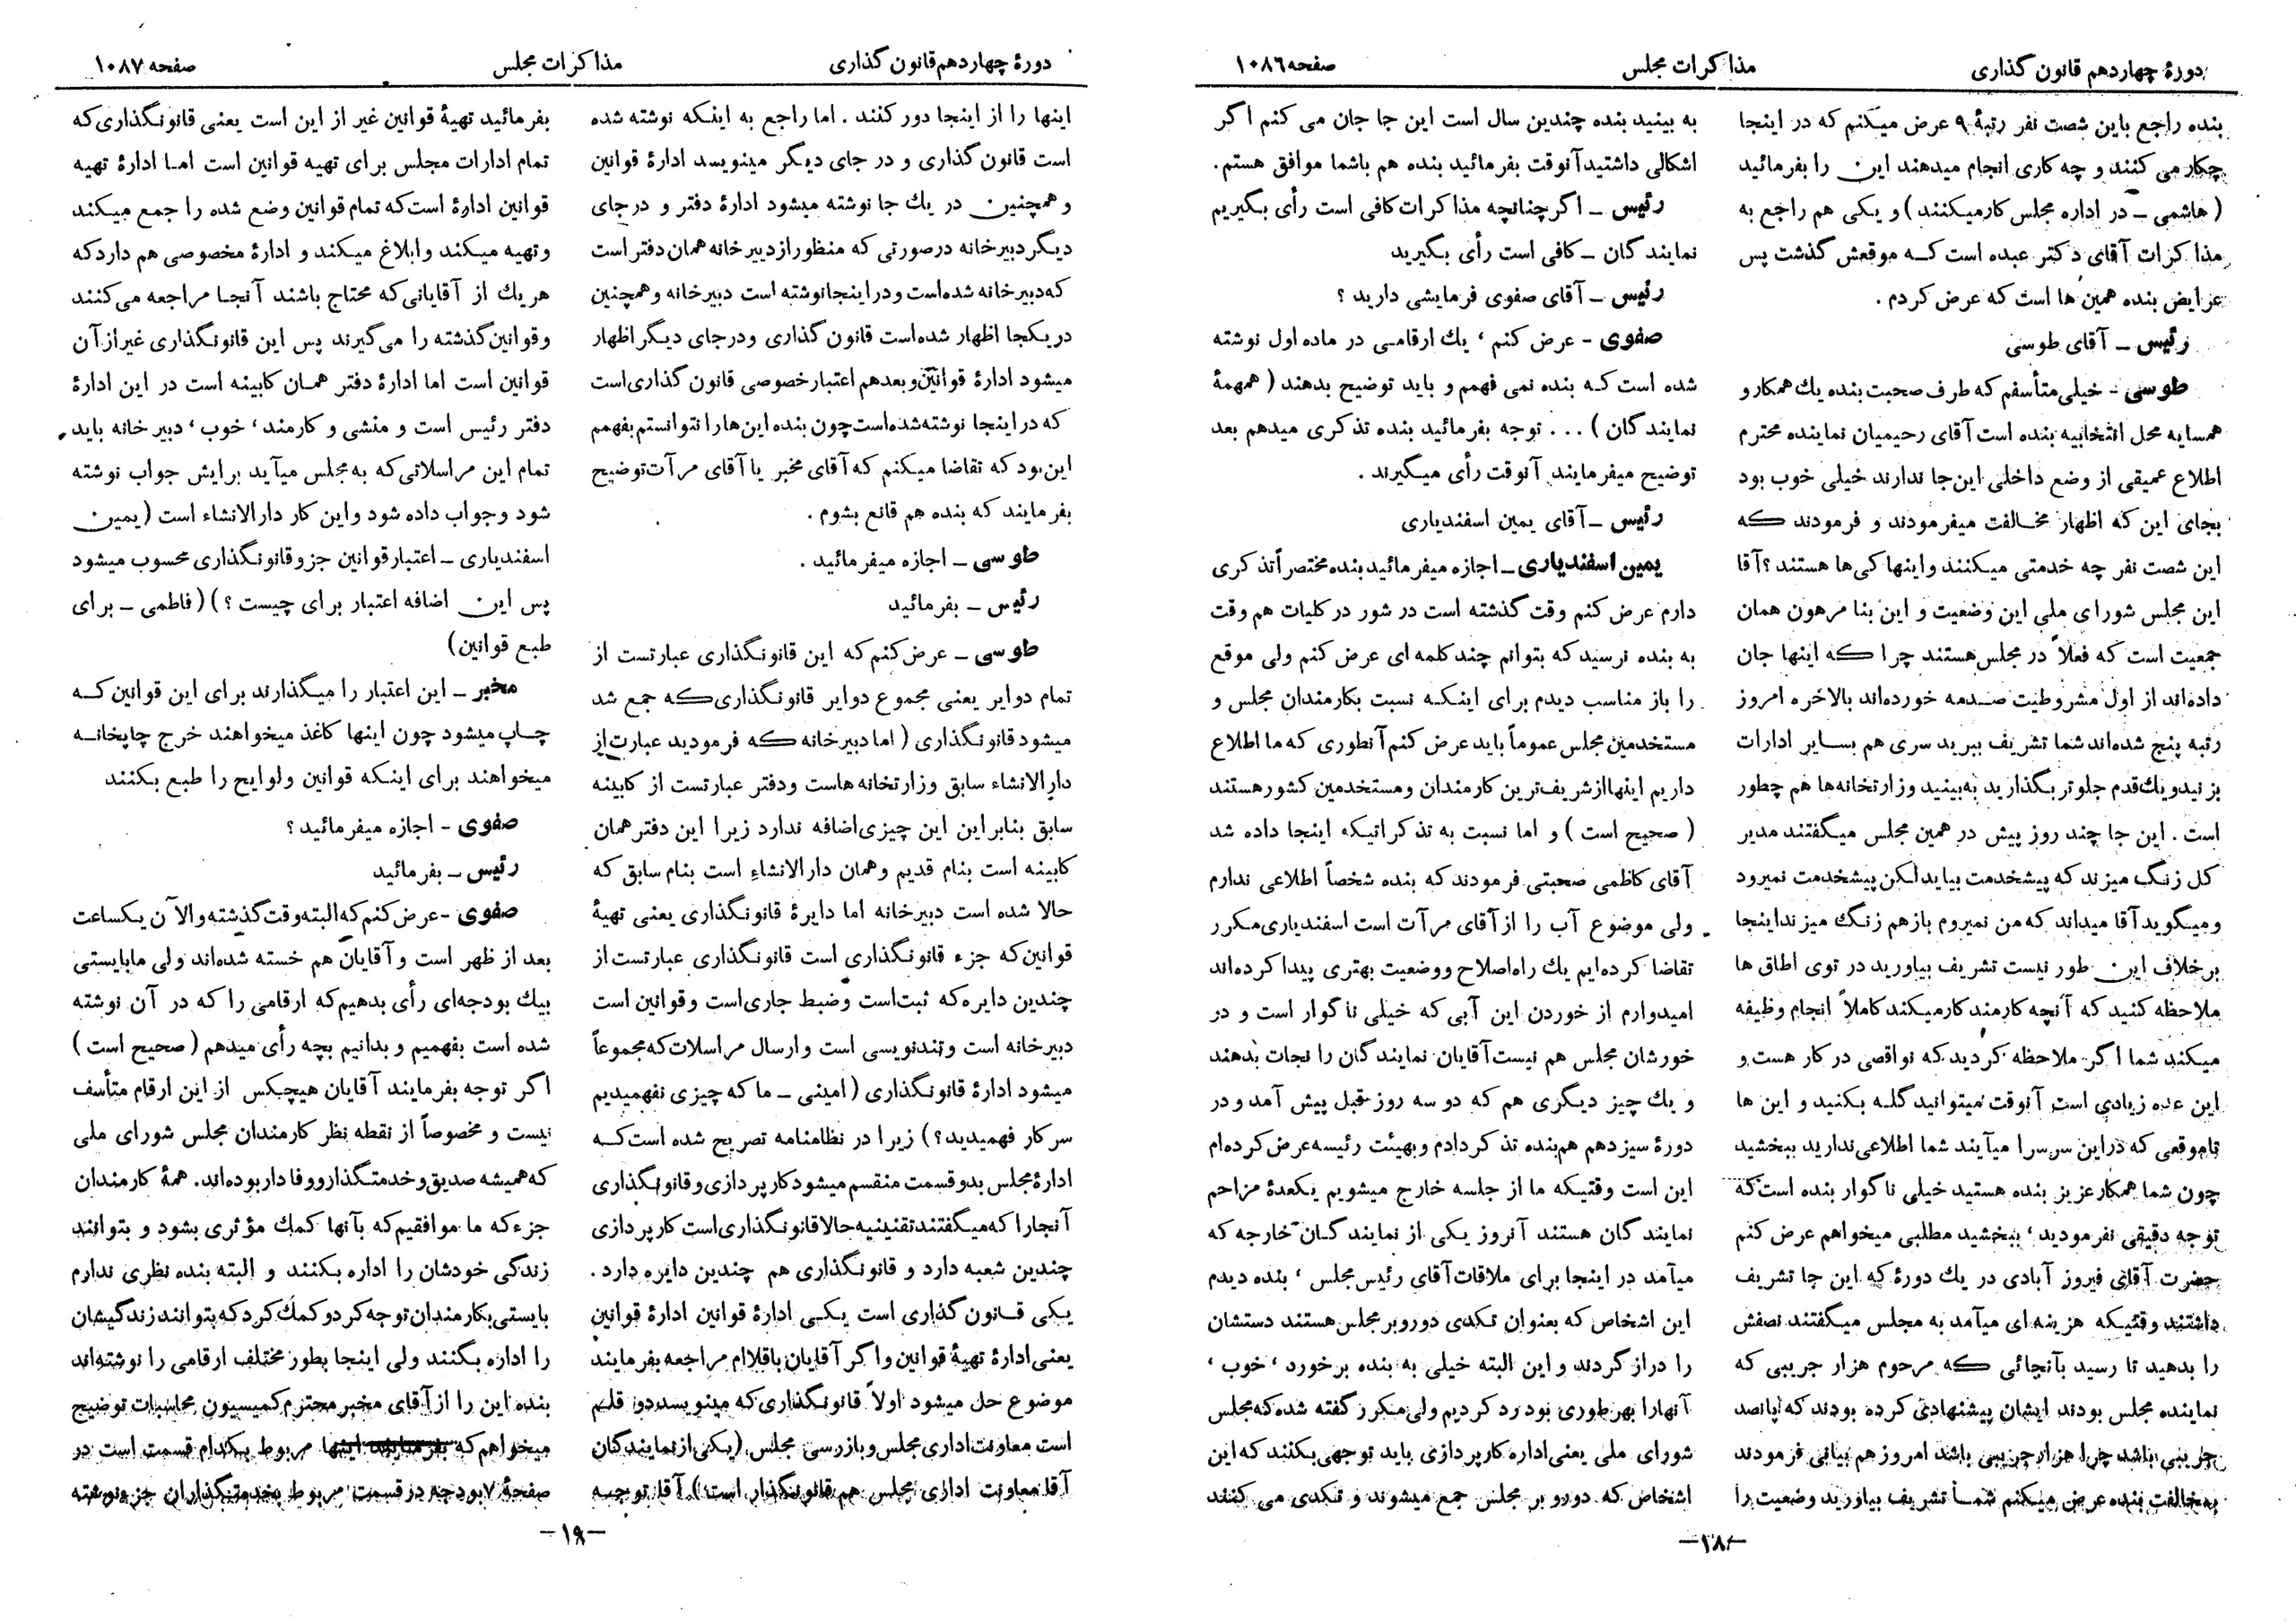 دورهٔ چهاردهم قانون گذاری
مذاکرات مجلس
صفحه ۱۰۸۶
بنده راجع باین شصت نفر رتبهٔ ۹ عرض میکنم که در اینجا
چکار می کنند و چه کاری انجام میدهند این را بفرمائید
(هاشمی ـ در اداره مجلس کار میکنند) و یکی هم راجع به
مذاکرات آقای دکتر عبده است که موقعش گذشت پس
عرایض بنده همین ها است که عرض کردم .
رئیس ـ آقای طوسی
طوسی ـ خیلی متأسفم که طرف صحبت بنده یك همکار و
همسایه محل انتخابیه بنده است آقای رحیمیان نماینده محترم
اطلاع عمیقی از وضع داخلی این جا ندارند خیلی خوب بود
بجای این که اظهار مخالفت میفرمودند و فرمودند که
این شصت نفر چه خدمتی میکنند واینها کی ها هستند ؟ آقا
این مجلس شورای ملی این وضعیت و این بنا مرهون همان
جمعیت است که فعلاً در مجلس هستند چرا که اینها جان
داده‌اند از اول مشروطیت صدمه خورده‌اند بالاخره امروز
رتبه پنج شده‌اند شما تشریف ببرید سری هم بسایر ادارات
بزنید و یك قدم جلوتر بگذارید به بینید وزارتخانه ها هم چطور
است . این جا چند روز پیش در همین مجلس میگفتند مدیر
کل زنگ میزند که پیشخدمت بیاید لکن پیشخدمت نمیرود
و میگوید آقا میداند که من نمیروم باز هم زنگ میزند اینجا
برخلاف این طور نیست تشریف بیاورید در توی اطاق ها
ملاحظه کنید که آنچه کارمند کار میکند کاملاً انجام وظیفه
میکند شما اگر ملاحظه کردید که نواقصی در کار هست و
این عده زیادی است آنوقت میتوانید گله بکنید و این ها
تا موقعی که در این سرسرا میآیند شما اطلاعی ندارید ببخشید
چون شما همکار عزیز بنده هستید خیلی ناگوار بنده است که
توجه دقیقی نفرمودید ، ببخشید مطلبی میخواهم عرض کنم
حضرت آقای فیروز آبادی در یك دورهٔ که این جا تشریف
داشتند وقتیکه هزینه ای میآمد به مجلس میگفتند نصفش
را بدهید تا رسید بآنجائی که مرحوم هزار جریبی که
نماینده مجلس بودند ایشان پیشنهادی کرده بودند که پانصد
جریبی باشد چرا هزار جریبی باشد امروز هم بیانی فرمودند
بمخالفت بنده عرض میکنم شما تشریف بیاورید وضعیت را
به بینید بنده چندین سال است این جا جان می کنم اگر
اشکالی داشتید آنوقت بفرمائید بنده هم باشما موافق هستم .
رئیس ـ اگر چنانچه مذاکرات کافی است رأی بگیریم
نمایندگان ـ کافی است رأی بگیرید
رئیس ـ آقای صفوی فرمایشی دارید ؟
صفوی ـ عرض کنم ، یك ارقامی در ماده اول نوشته
شده است که بنده نمی فهمم و باید توضیح بدهند ( همهمهٔ
نمایندگان ) ... توجه بفرمائید بنده تذکری میدهم بعد
توضیح میفرمایند آنوقت رأی میگیرند .
رئیس ـ آقای یمین اسفندیاری
یمین اسفندیاری ـ اجازه میفرمائید بنده مختصراً تذکری
دارم عرض کنم وقت گذشته است در شور در کلیات هم وقت
به بنده نرسید که بتوانم چند کلمه ای عرض کنم ولی موقع
را باز مناسب دیدم برای اینکه نسبت بکارمندان مجلس و
مستخدمین مجلس عموماً باید عرض کنم آنطوری که ما اطلاع
داریم اینها از شریف ترین کارمندان و مستخدمین کشور هستند
( صحیح است ) و اما نسبت به تذکراتیکه اینجا داده شد
آقای کاظمی صحبتی فرمودند که بنده شخصاً اطلاعی ندارم
ولی موضوع آب را از آقای مرآت است اسفندیاری مکرر
تقاضا کرده‌ایم یك راه اصلاح و وضعیت بهتری پیدا کرده‌اند
امیدوارم از خوردن این آبی که خیلی ناگوار است و در
خورشان مجلس هم نیست آقایان نمایندگان را نجات بدهند
و یك چیز دیگری هم که دو سه روز قبل پیش آمد و در
دورهٔ سیزدهم هم بنده تذکر دادم و بهیئت رئیسه عرض کرده‌ام
این است وقتیکه ما از جلسه خارج میشویم یکعدهٔ مزاحم
نمایندگان هستند آنروز یکی از نمایندگان خارجه که
میآمد در اینجا برای ملاقات آقای رئیس مجلس ، بنده دیدم
این اشخاص که بعنوان تکدی دوروبر مجلس هستند دستشان
را دراز کردند و این البته خیلی به بنده برخورد ، خوب ،
آنها را بهر طوری بود رد کردیم ولی مکرر گفته شده که مجلس
شورای ملی یعنی اداره کارپردازی باید توجهی بکنند که این
اشخاص که دوروبر مجلس جمع میشوند و تکدی می کنند
ـ۱۸ـ
دورهٔ چهاردهم قانون گذاری
مذاکرات مجلس
صفحه ۱۰۸۷
اینها را از اینجا دور کنند . اما راجع به اینکه نوشته شده
است قانون گذاری و در جای دیگر مینویسد ادارهٔ قوانین
و همچنین در یك جا نوشته میشود ادارهٔ دفتر و در جای
دیگر دبیرخانه درصورتی که منظور از دبیرخانه همان دفتر است
که دبیرخانه شده است و در اینجا نوشته است دبیرخانه و همچنین
در یکجا اظهار شده است قانون گذاری و در جای دیگر اظهار
میشود ادارهٔ قوانین و بعدهم اعتبار خصوصی قانون گذاری است
که در اینجا نوشته شده است چون بنده این ها را نتوانستم بفهمم
این بود که تقاضا میکنم که آقای مخبر یا آقای مرآت توضیح
بفرمایند که بنده هم قانع بشوم .
طوسی ـ اجازه میفرمائید .
رئیس ـ بفرمائید
طوسی ـ عرض کنم که این قانونگذاری عبارتست از
تمام دوایر یعنی مجموع دوایر قانونگذاری که جمع شد
میشود قانونگذاری ( اما دبیرخانه که فرمودید عبارت از
دارالانشاء سابق وزارتخانه هاست و دفتر عبارتست از کابینه
سابق بنابراین این چیزی اضافه ندارد زیرا این دفتر همان
کابینه است بنام قدیم و همان دارالانشاء است بنام سابق که
حالا شده است دبیرخانه اما دایرهٔ قانونگذاری یعنی تهیهٔ
قوانین که جزء قانونگذاری است قانونگذاری عبارتست از
چندین دایره که ثبت است وضبط جاری است و قوانین است
دبیرخانه است و تندنویسی است و ارسال مراسلات که مجموعاً
میشود ادارهٔ قانونگذاری ( امینی ـ ما که چیزی نفهمیدیم
سرکار فهمیدید؟) زیرا در نظامنامه تصریح شده است که
ادارهٔ مجلس بدو قسمت منقسم میشود کارپردازی و قانونگذاری
آنجا را که میگفتند تقنینیه حالا قانونگذاری است کارپردازی
چندین شعبه دارد و قانونگذاری هم چندین دایره دارد .
یکی قانون گذاری است یکی ادارهٔ قوانین ادارهٔ قوانین
یعنی ادارهٔ تهیهٔ قوانین و اگر آقایان باقلام مراجعه بفرمایند
موضوع حل میشود اولاً قانونگذاری که مینویسد دو قلم
است معاونت اداری مجلس و بازرسی مجلس (یکی از نمایندگان
آقا معاونت اداری مجلس هم قانونگذار است؟) آقا توجه
بفرمائید تهیهٔ قوانین غیر از این است یعنی قانونگذاری که
تمام ادارات مجلس برای تهیه قوانین است اما ادارهٔ تهیه
قوانین ادارهٔ است که تمام قوانین وضع شده را جمع میکند
و تهیه میکند و ابلاغ میکند و ادارهٔ مخصوصی هم دارد که
هر یك از آقایانی که محتاج باشند آنجا مراجعه می کنند
و قوانین گذشته را می گیرند پس این قانونگذاری غیر از آن
قوانین است اما ادارهٔ دفتر همان کابینه است در این ادارهٔ
دفتر رئیس است و منشی و کارمند ، خوب ، دبیرخانه باید
تمام این مراسلاتی که به مجلس میآید برایش جواب نوشته
شود و جواب داده شود و این کار دارالانشاء است (یمین
اسفندیاری ـ اعتبار قوانین جزو قانونگذاری محسوب میشود
پس این اضافه اعتبار برای چیست ؟) (فاطمی ـ برای
طبع قوانین)
مخبر ـ این اعتبار را میگذارند برای این قوانین که
چاپ میشود چون اینها کاغذ میخواهند خرج چاپخانه
میخواهند برای اینکه قوانین ولوایح را طبع بکنند
صفوی ـ اجازه میفرمائید ؟
رئیس ـ بفرمائید
صفوی ـ عرض کنم که البته وقت گذشته و الآن یکساعت
بعد از ظهر است و آقایان هم خسته شده‌اند ولی ما بایستی
بیك بودجه‌ای رأی بدهیم که ارقامی را که در آن نوشته
شده است بفهمیم و بدانیم بچه رأی میدهم ( صحیح است )
اگر توجه بفرمایند آقایان هیچکس از این ارقام متأسف
نیست و مخصوصاً از نقطه نظر کارمندان مجلس شورای ملی
که همیشه صدیق و خدمتگذار و وفادار بوده‌اند . همهٔ کارمندان
جزء که ما موافقیم که بآنها کمك مؤثری بشود و بتوانند
زندگی خودشان را اداره بکنند و البته بنده نظری ندارم
بایستی بکارمندان توجه کرد و کمك کرد که بتوانند زندگیشان
را اداره بکنند ولی اینجا بطور مختلف ارقامی را نوشته‌اند
بنده این را از آقای مخبر محترم کمیسیون محاسبات توضیح
میخواهم که بفرمایند اینها مربوط بکدام قسمت است در
صفحهٔ ۷ بودجه در قسمت مربوط بخدمتگذاران جزء نوشته
ـ۱۹ـ